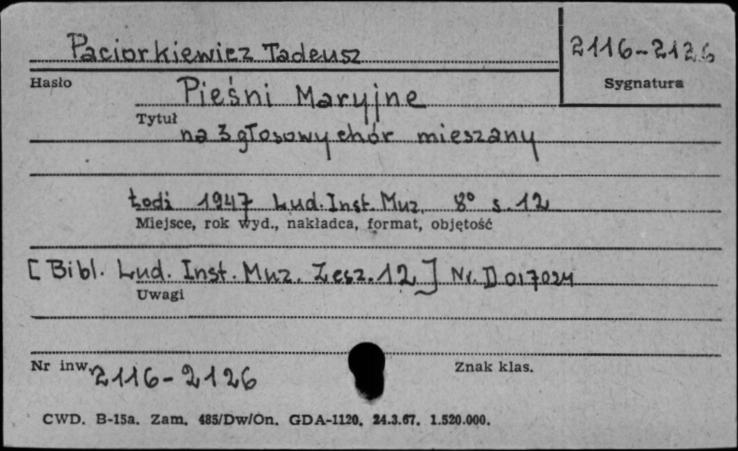 Paciorkiewicz Tadeusz
2116-2126
Hasło
Sygnatura
Pieśni Maryjne
Tytuł
na 3 głosowy chór mieszany
Łódź 1947 Lud. Inst. Muz. 8° s. 12
Miejsce, rok wyd., nakładca, format, objętość
[Bibl. Lud. Inst. Muz. Zesz. 12] Nr. D 017024
Uwagi
Nr inw. 2116-2126
Znak klas.
CWD. B-15a. Zam. 485/Dw/On. GDA-1120. 24.3.67. 1.520.000.